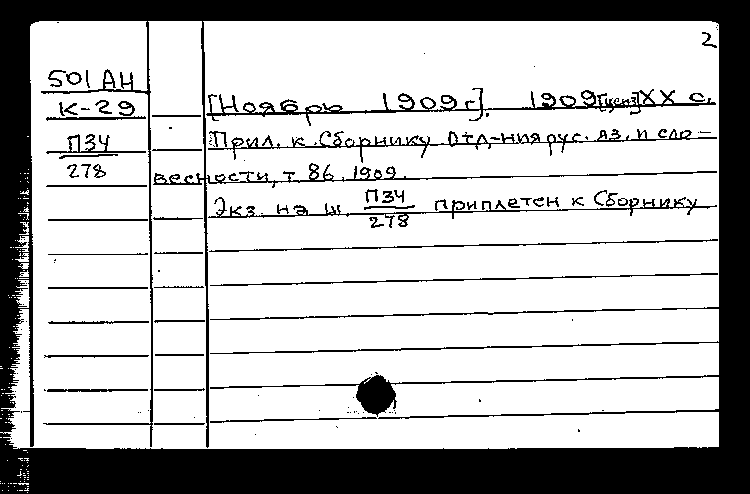 2
501 АН
К-29
[Ноябрь 1909 г]. 1909 [ценз] XX с.
П34
278
Прил. к Сборнику Отд-ния рус. яз. и сло-
весности, т. 86, 1909.
Экз. на ш. П34
278 приплетен к Сборнику